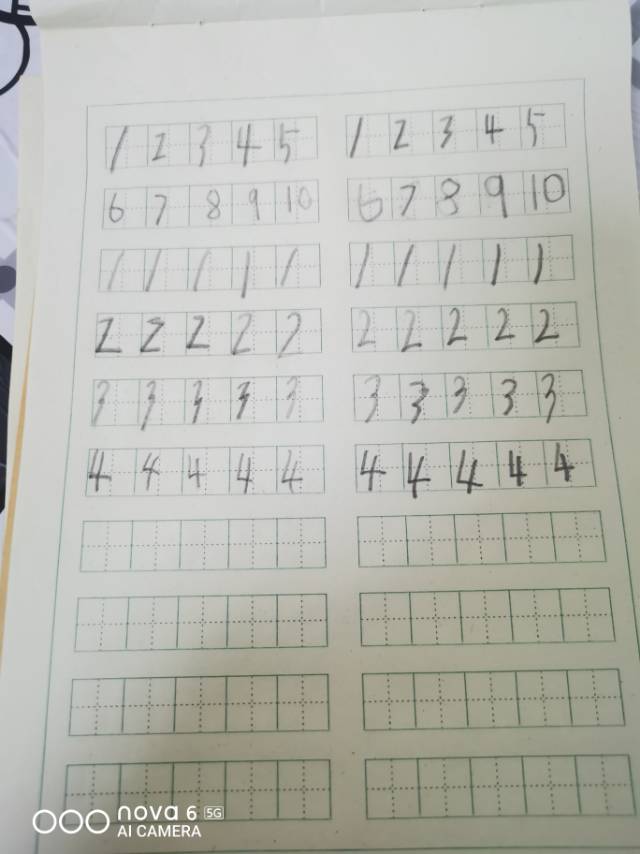 1 2 3 4 5 1 2 3 4 5
6 7 8 9 10 6 7 8 9 10
1 1 1 1 1 1 1 1 1 1
2 2 2 2 2 2 2 2 2 2
3 3 3 3 3 3 3 3 3 3
4 4 4 4 4 4 4 4 4 4
nova 6 5G
AI CAMERA